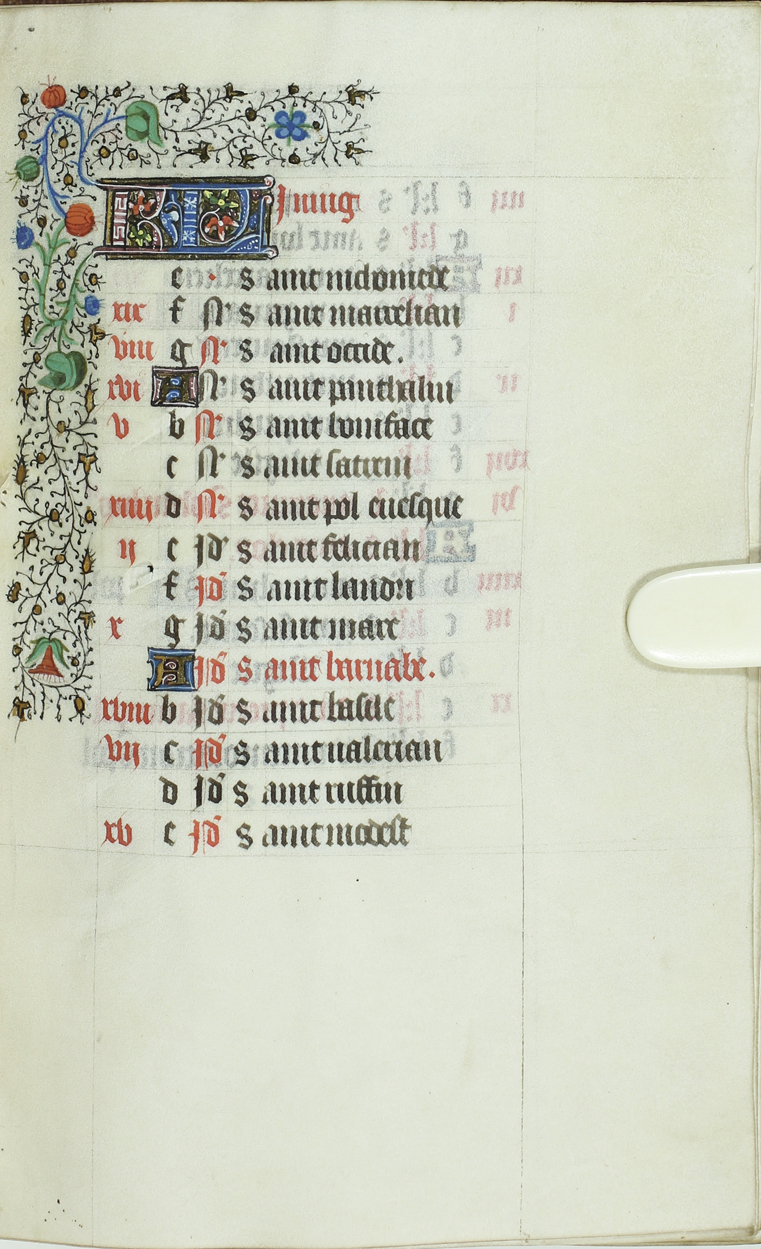 KL Iunius
e · Saint nichomede
xix f N Saint marcelian
viii g N Saint occide.
xvi A N Saint panthalin
v b N Saint boniface
c N Saint satirin
xiii d N Saint pol euesque
ij e Id Saint felician
f Id Saint landri
x g Id Saint marc
A Id Saint barnabe.
xviii b Id Saint basile
vij c Id Saint ualerian
d Id Saint ruffin
xv e Id Saint modest